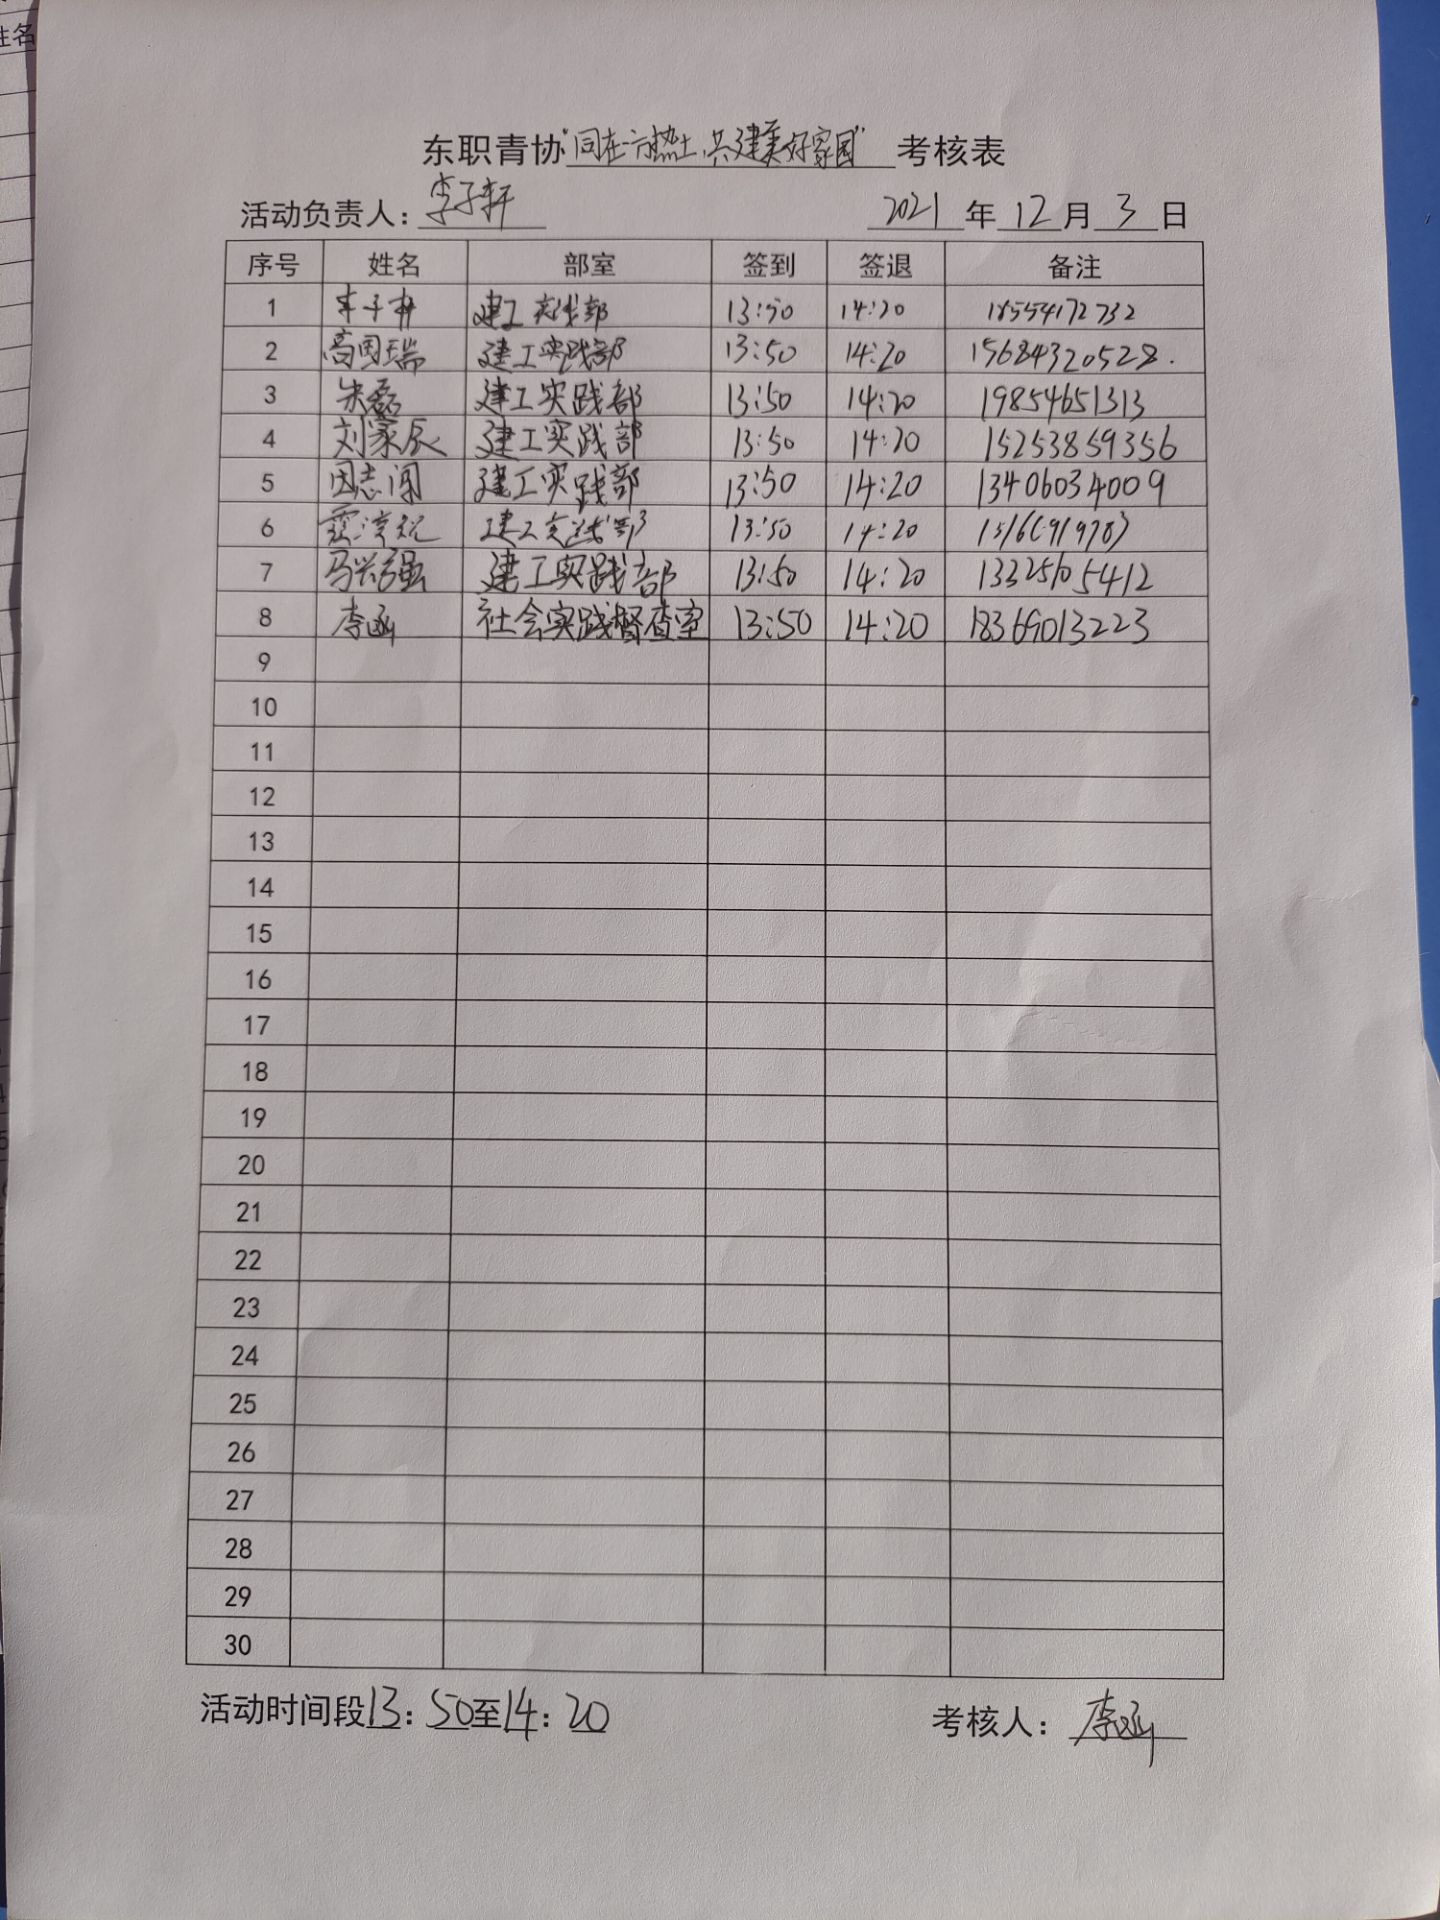 姓名
东职青协"同在一方热土,共建美好家园"考核表
活动负责人:李子轩 2021年12月3日
序号 姓名 部室 签到 签退 备注
1 李子轩 建工实践部 13:50 14:20 18554172732
2 高国瑞 建工实践部 13:50 14:20 15684320528.
3 朱磊 建工实践部 13:50 14:20 19854651313
4 刘家辰 建工实践部 13:50 14:20 15253859356
5 建工实践部 13:50 14:20 13406034009
6 建工实践部 13:50 14:20
7 马兴强 建工实践部 13:50 14:20 13325105412
8 李函 社会实践督查室 13:50 14:20 18369013223
9
10
11
12
13
14
15
16
17
18
19
20
21
22
23
24
25
26
27
28
29
30
活动时间段13:50至14:20 考核人:李函